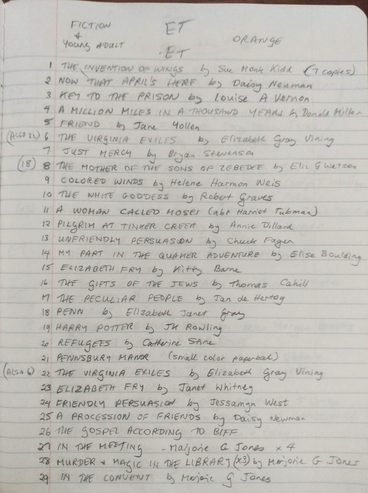 FICTION
&
Young ADULT
ET
ET
ORANGE
1 THE INVENTION OF WINGS by Sue Monk Kidd (7 copies)
2 NOW THAT APRIL'S HERE by Daisy Newman
3 KEY TO THE PRISON by Louise A Vernon
4 A MILLION MILES IN A THOUSAND YEARS by Donald Miller
5 FRIEND by Jane Yollen
(ALSO 22) 6 THE VIRGINIA EXILES by Elizabeth Gray Vining
7 JUST MERCY by Bryan Stevenson
(18) 8 THE MOTHER OF THE SONS OF ZEBEDEE by Eliz G Watson
9 COLORED WINDS by Helene Harmon Weis
10 THE WHITE GODDESS by Robert Graves
11 A WOMAN CALLED MOSES (abt Harriet Tubman)
12 PILGRIM AT TINKER CREEK by Annie Dillard
13 UNFRIENDLY PERSUASION by Chuck Fager
14 MY PART IN THE QUAKER ADVENTURE by Elise Boulding
15 ELIZABETH FRY by Kitty Barne
16 THE GIFTS OF THE JEWS by Thomas Cahill
17 THE PECULIAR PEOPLE by Jan de Hartog
18 PENN by Elizabeth Janet Gray
19 HARRY POTTER by JK Rowling
20 REFUGEES by Catherine Stine
21 PENNSBURY MANOR (small color paperback)
(ALSO 6) 22 THE VIRGINIA EXILES by Elizabeth Gray Vining
23 ELIZABETH FRY by Janet Whitney
24 FRIENDLY PERSUASION by Jessamyn West
25 A PROCESSION OF FRIENDS by Daisy Newman
26 THE GOSPEL ACCORDING TO BIFF
27 IN THE MEETING - Marjorie G Jones x 4
28 MURDER & MAGIC IN THE LIBRARY (x3) by Marjorie G Jones
29 IN THE CONVENT by Marjorie G Jones